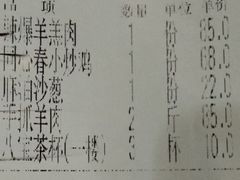 品 项 数量 单位 单价
爆羊羔肉 1 份 85.0
春小炒鸡 1 份 68.0
麻油沙葱 1 份 22.0
手抓羊肉 2 斤 85.0
八宝茶杯(一楼) 3 杯 10.0